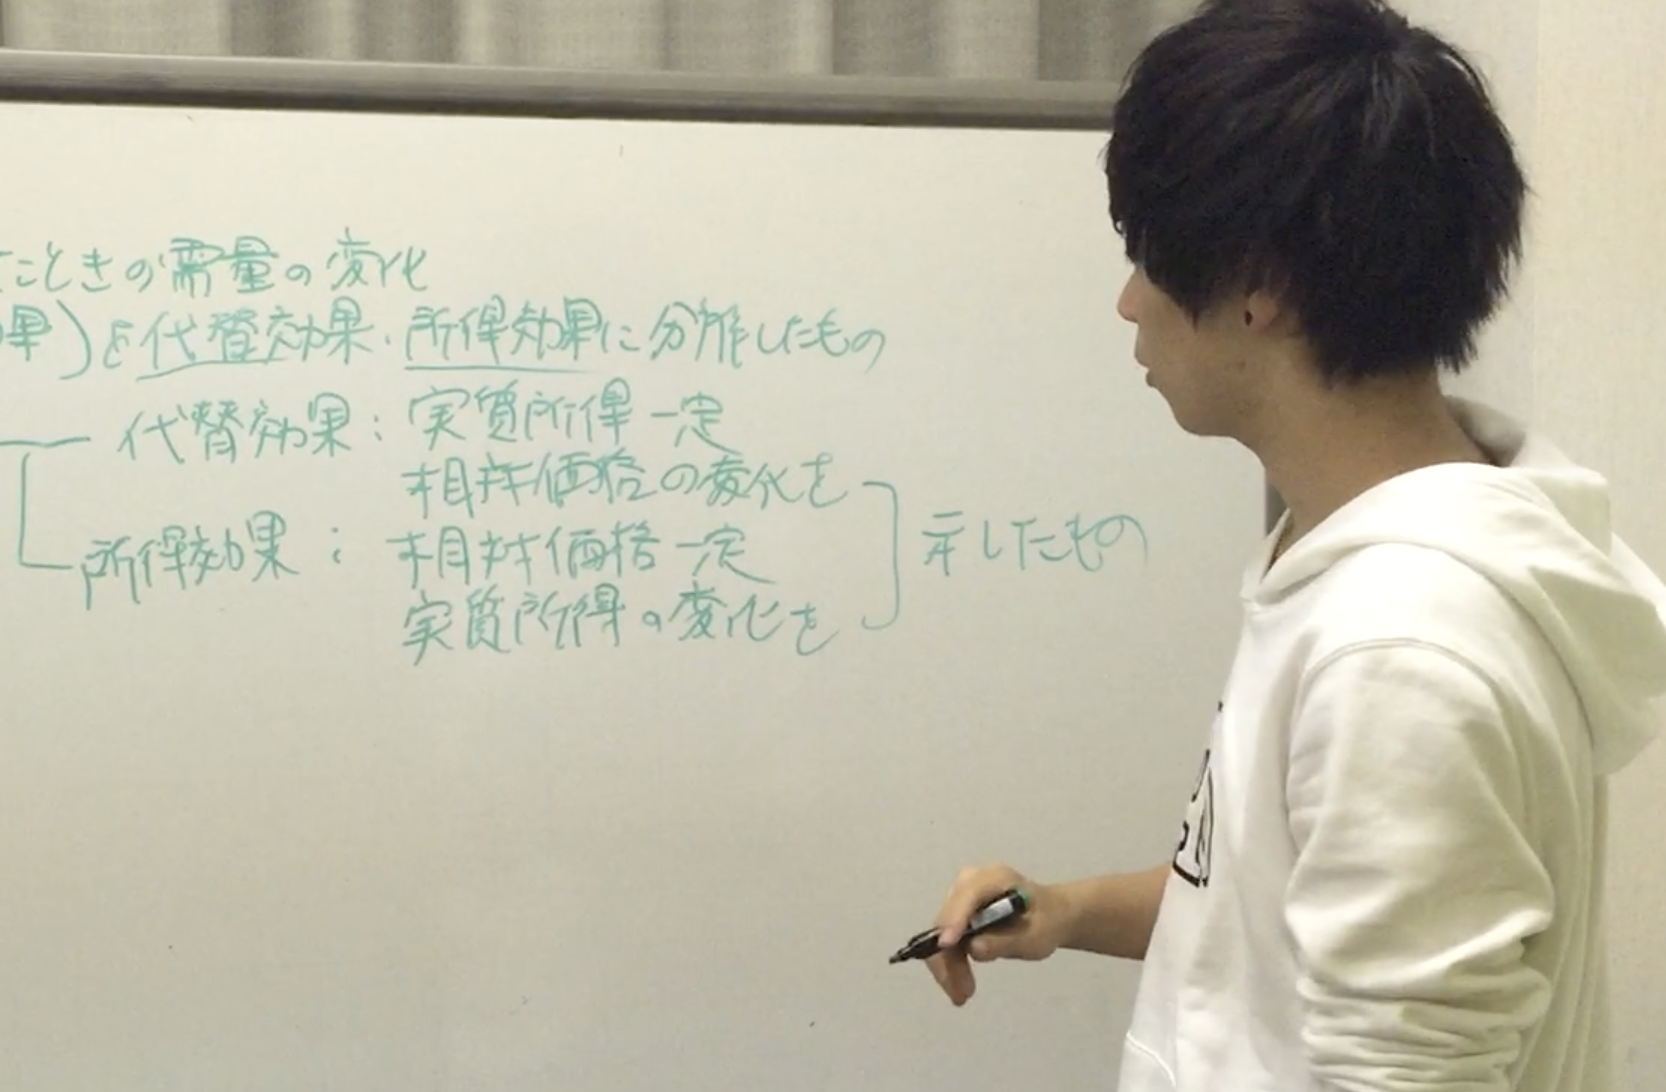 たときの需量の変化
果)を代替効果・所得効果に分解したもの
代替効果：実質所得一定
相対価格の変化を
所得効果：相対価格一定
実質所得の変化を
示したもの